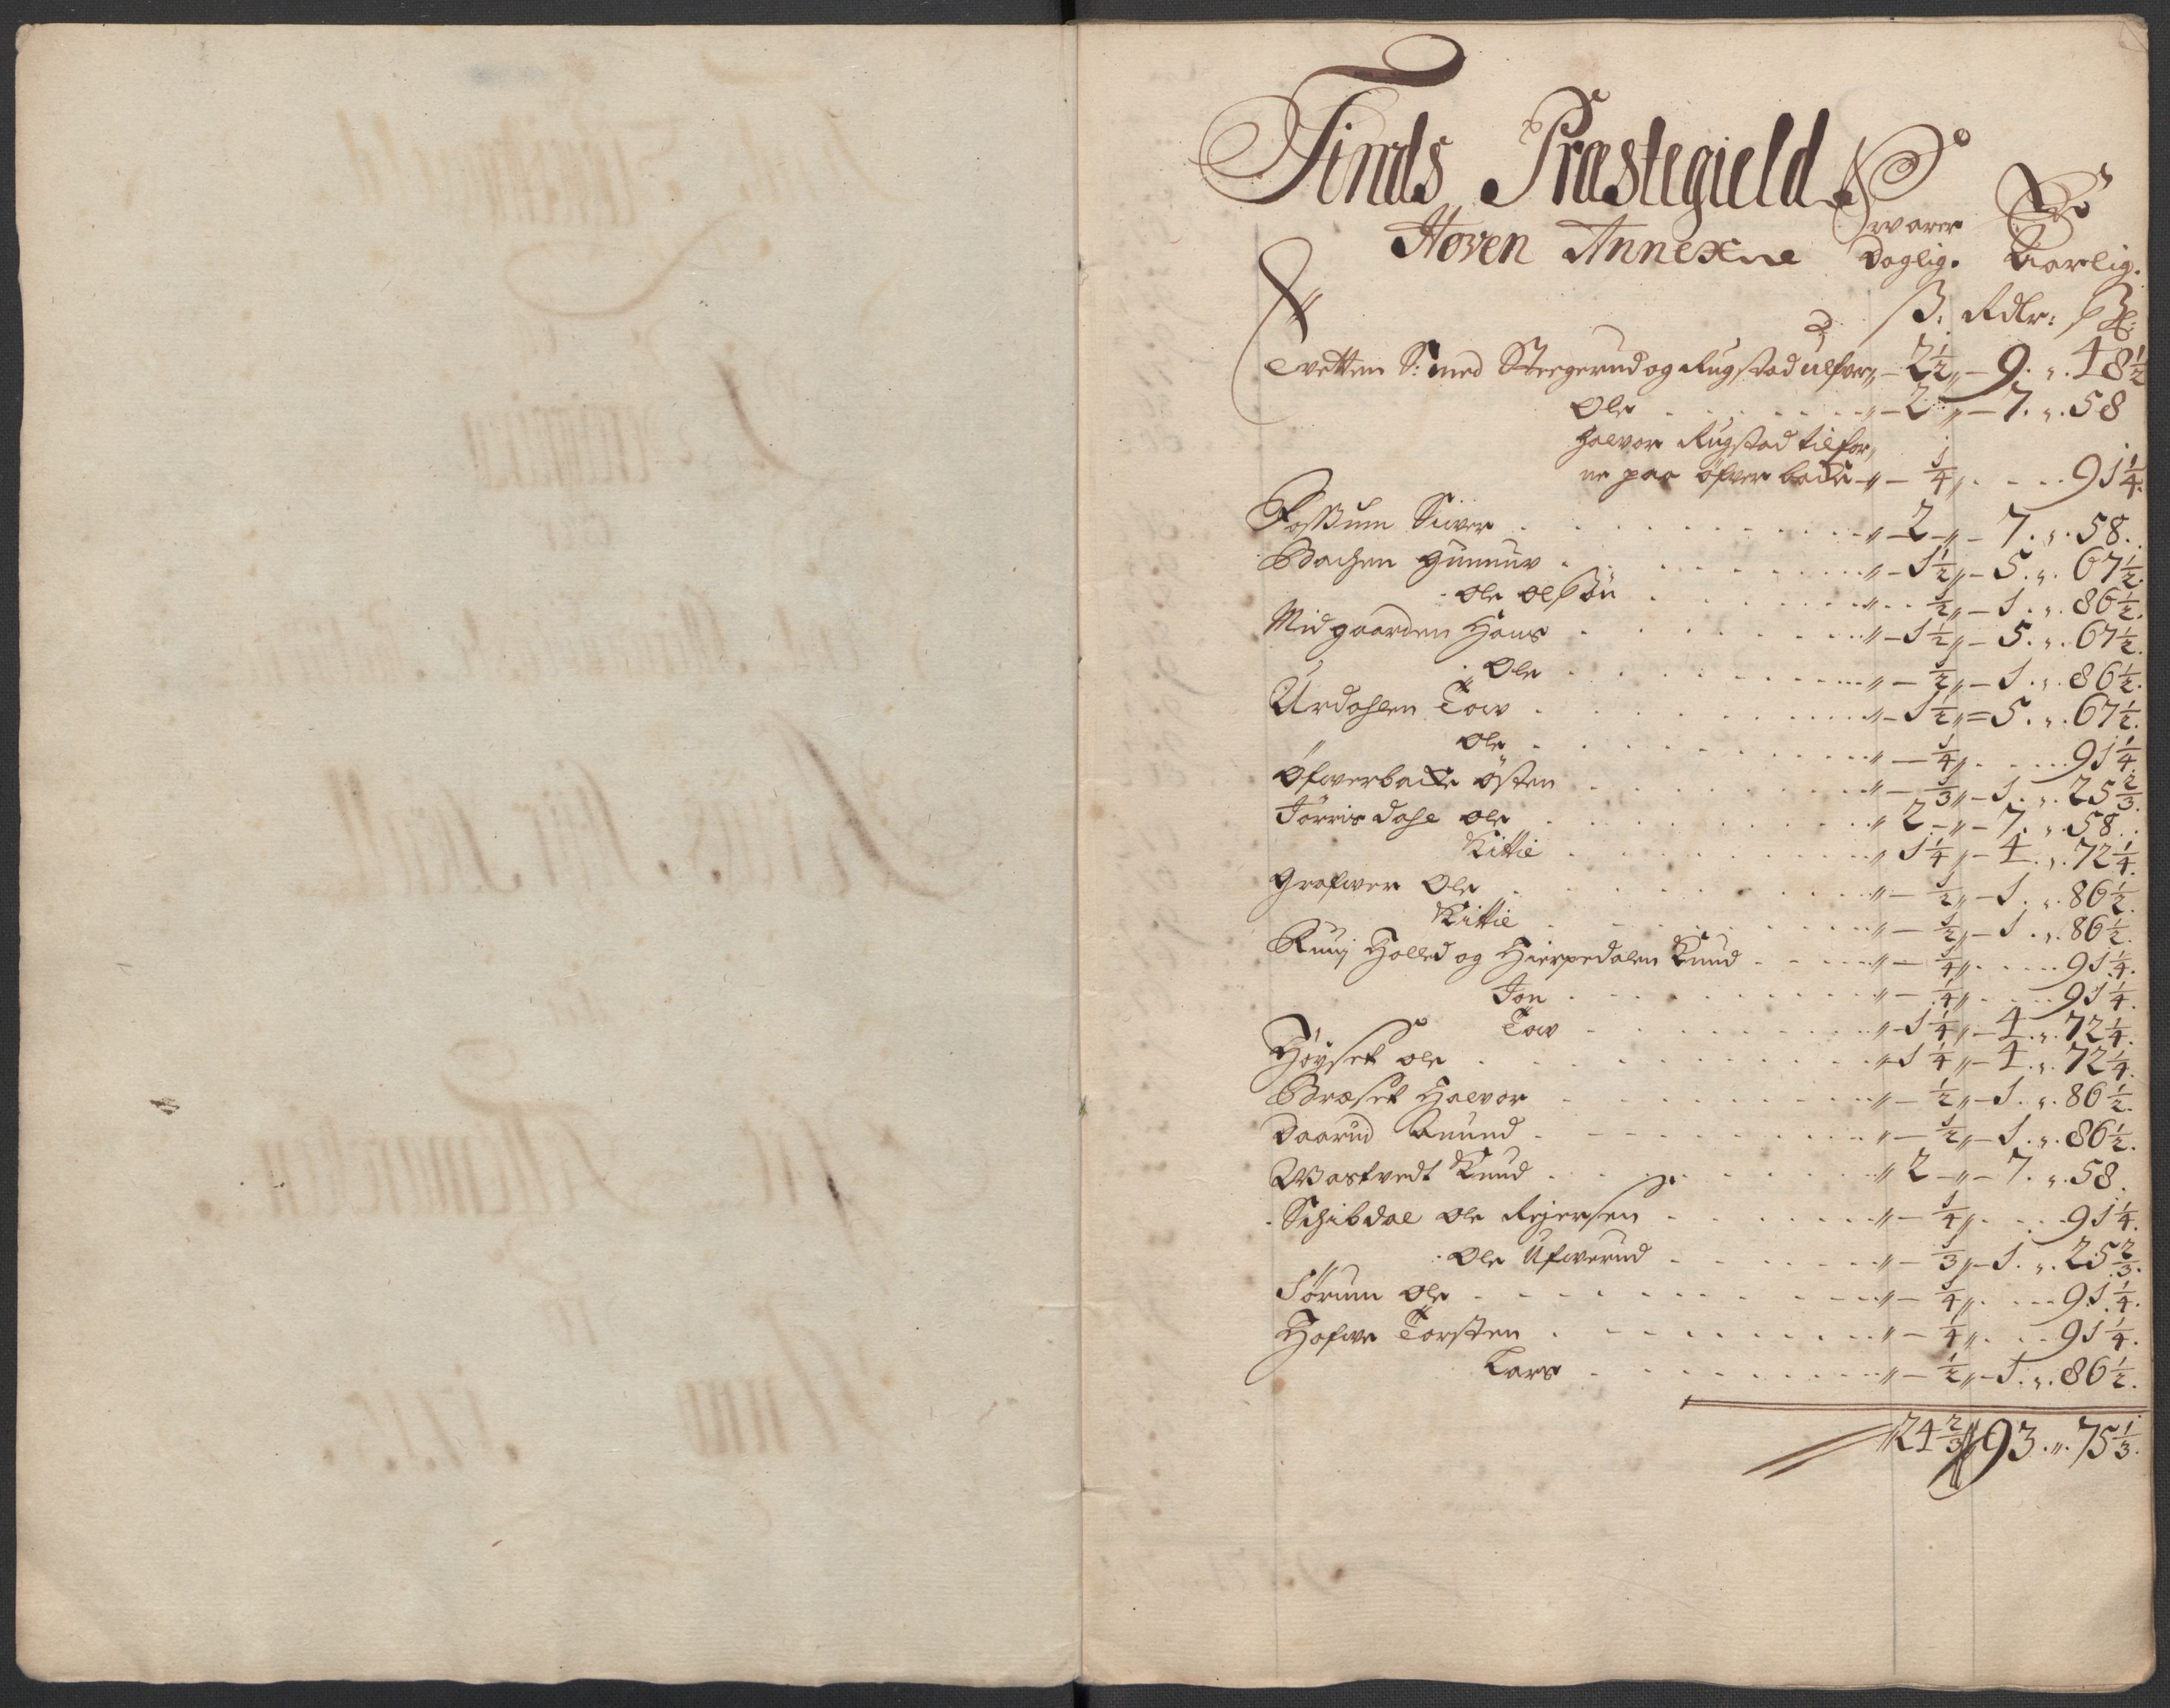 Tinds Præstegield
Hoven Annexne
Swarer Daglig. Aarlig.
ß. Rdlr: ß
Tvetten S: med Steegerud og Rugstad ulfver „ – 2½ „ – 9. „. 48½
Ole „ – 2 „ – 7. „. 58
Halvor Rugstad tilfor,
ne paa öfver backe „ – ¼ „ 91¼.
Fossum Siver „ 2 „ – 7. „. 58.
Bachen Gunnuv „ – 1½ „ – 5. „. 67½.
Ole Olsön „ ½ „ – 1. „. 86½.
Midgaarden Hans „ – 1½ „ – 5. „. 67½.
„ Ole „ – ½ „ – 1. „. 86½.
Urdahlen Tov „ – 1½ „ = 5. „. 67½.
„ Ole „ – ¼ „ 91¼.
Öfwerbacke Östen „ – ⅓ „ – 1. „. 25⅔.
Törrisdahl Ole „ 2 – „ – 7. „. 58.
Kittil „ 1¼ „ – 4. „. 72¼.
Grafwer Ole „ – ½ „ – 1. „. 86½.
Kittil „ – ½ „ – 1. „. 86½.
Ruuj Holled og Hierpedalen Knud „ – ¼ „ 91¼.
Jon „ – ¼ „ 91¼.
Tov „ – 1¼ „ – 4. „. 72¼.
Höyset Ole „ – 1¼ „ – 4. „. 72¼.
Bræset Halvor „ – ½ „ – 1. „. 86½.
Daarud Amund „ – ½ „ – 1. „. 86½.
Wastvedt Knud „ 2 – „ – 7. „. 58.
Schibdal Ole Rejersen „ – ¼ „ 91¼.
„ Ole Ufwerud „ – ⅓ „ – 1. „. 25⅔.
Sörum Ole „ – ¼ „ 91¼.
Hofwe Torsten „ – ¼ „ 91¼.
Lars „ – ½ „ – 1. „. 86½.
24⅔ „ 93. „. 75⅓.